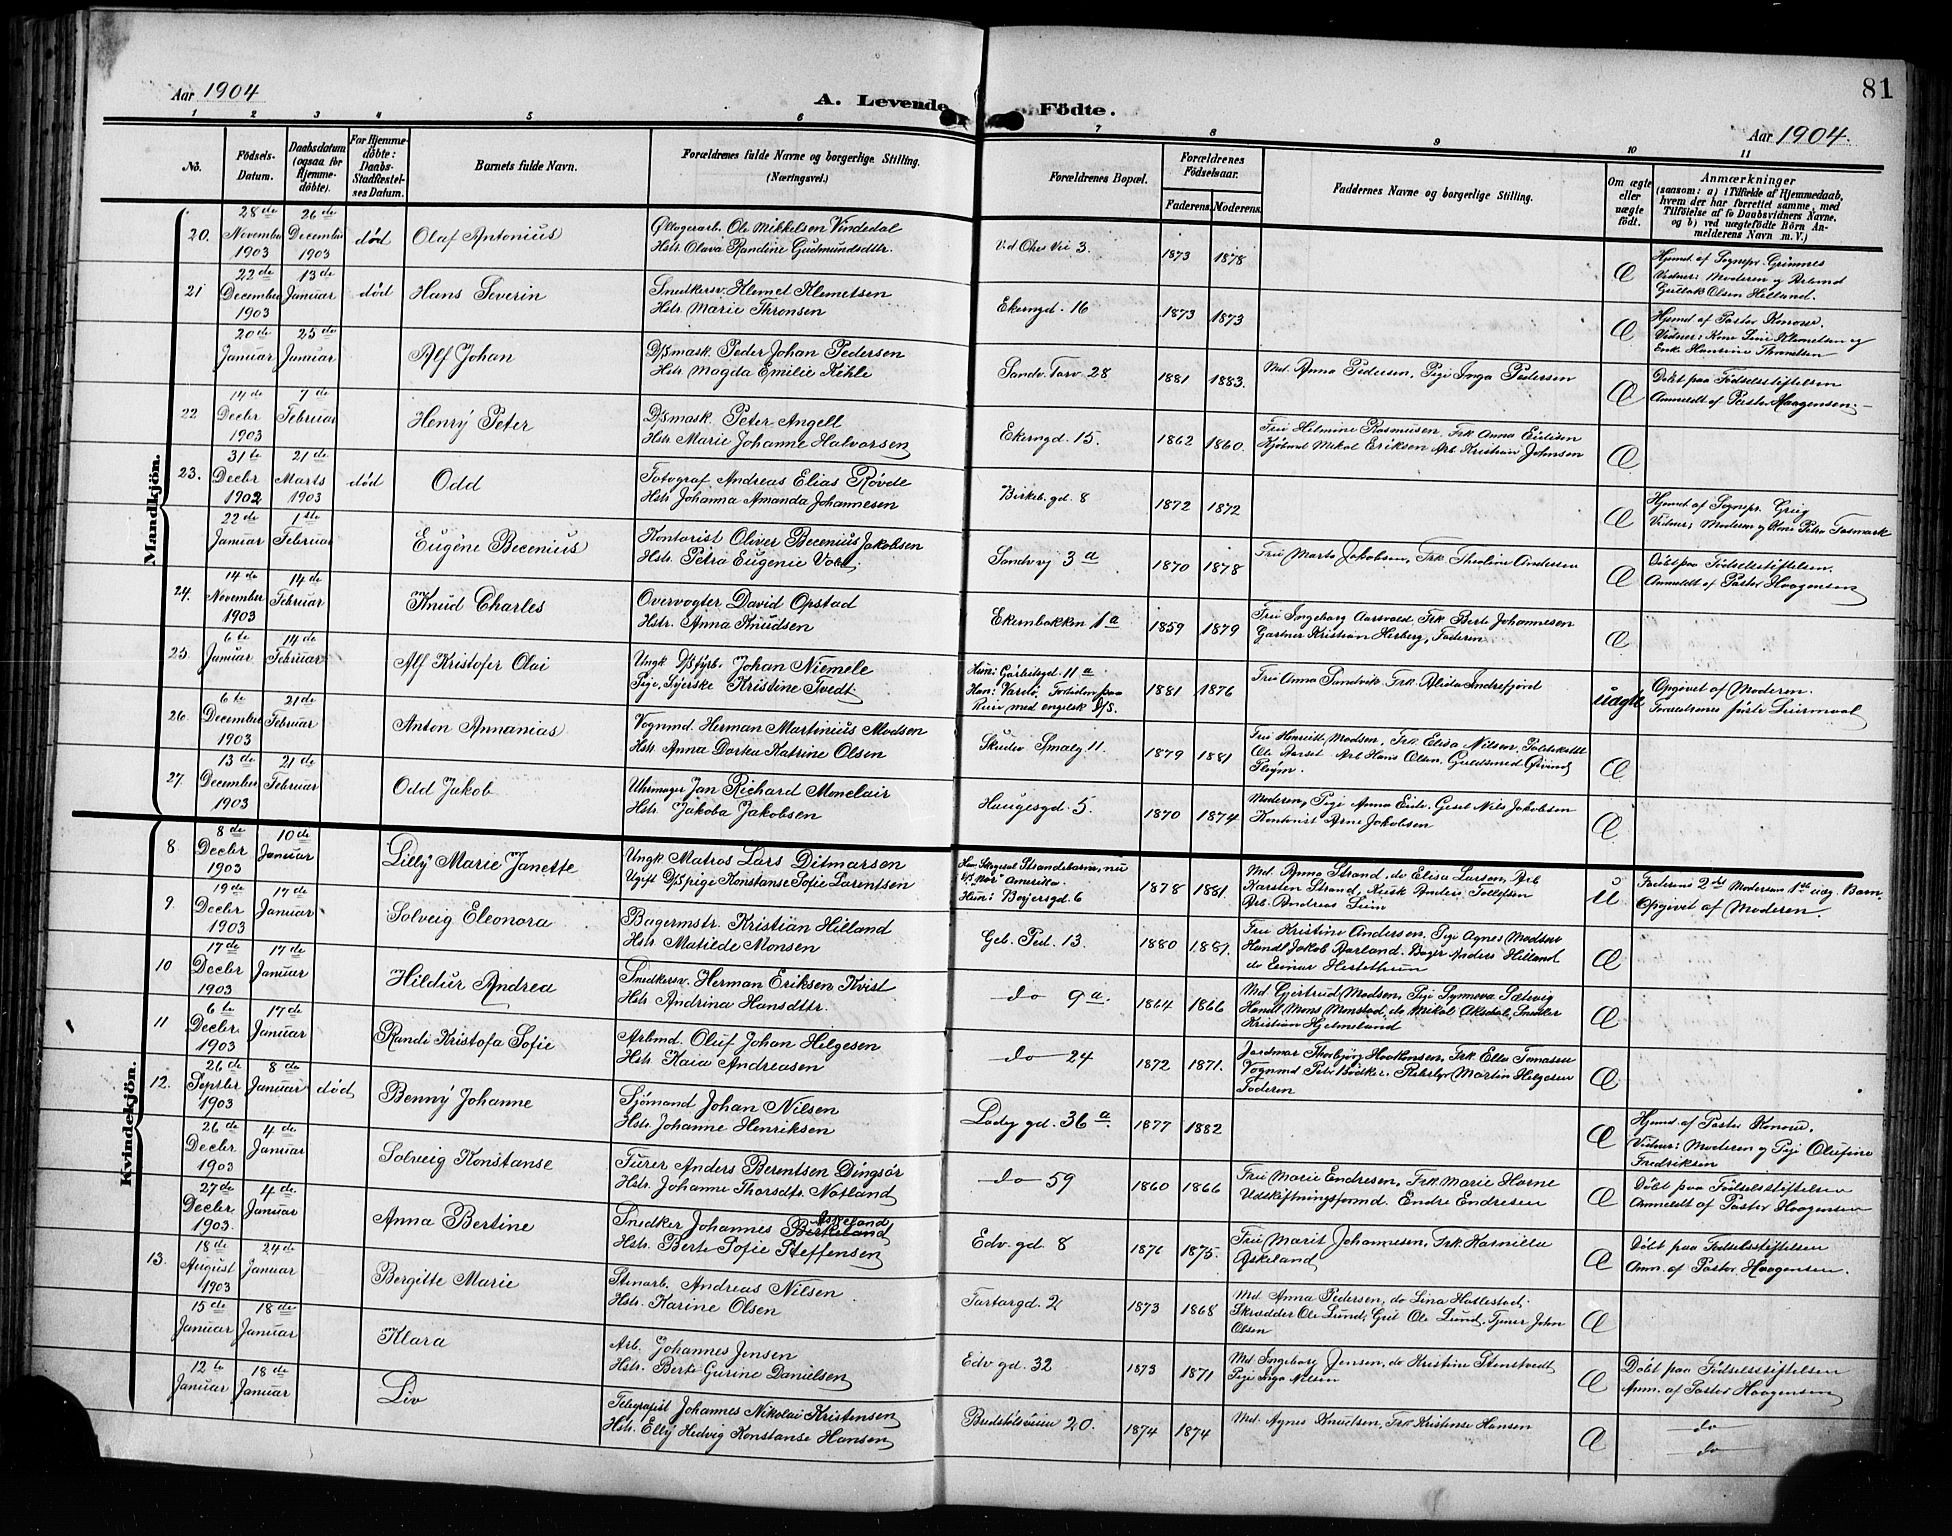 Aar 1904
A. Levende Födte.
81
Aar 1904.
1 2 3 4 5 6 7 8 9 10 11
No.
Födsels-Datum.
Daabsdatum (ogsaa for Hjemmedöbte).
For Hjemmedöbte: Daabs-Stadfæstelses Datum.
Barnets fulde Navn.
Forældrenes fulde Navne og borgerlige Stilling.
(Næringsvei.)
Forældrenes Bopæl.
Forældrenes Födselsaar.
Faderens. Moderens.
Faddernes Navne og borgerlige Stilling.
Om ægte eller uægte födt.
Anmærkninger
(saasom: a) i Tilfælde af Hjemmedaab, hvem der har forrettet samme, med Tilföielse af to Daabsvidners Navne, og b) ved uægtefödte Börn Anmelderens Navn m. V.)
Mandkjön.
20. 28de November 1903 26de December 1903 död Olaf Antonius
Ölltogerarb. Ole Mikkelsen Vindedal
Hstr. Olava Randine Gudmundsdtr.
Vid Ohes Vei 3. 1873 1878 Æ
Hjemd. af Sognepr. Grimnes
Vidner: Moderen og Arbmd
Gullak Olsen Helland.
21 22de December 1903 13de Januar död Hans Severin
Snedkersv. Klemet Klemetsen
Hstr. Marie Thronsen
Ekerngd. 16 1873 1873 Æ
Hjemd af Pastor Konow.
20de Januar 25de Januar Alf Johan
D/Smask. Peder Johan Pedersen
Hstr. Magda Emilie Kihle
Sandv. Torv 28 1881 1883.
Md. Anna Pedersen, Pige Inga Pedersen Æ
Döbt paa Födselsstiftelsen
Anmeldt af Pastor Haagensen.
22 14de Decbr 1903 7de Februar Henry Peter
D/Smask. Peter Angell
Hstr. Marie Johanne Halvorsen
Ekerngd. 15. 1862 1860.
Fru Helmine Rasmusen, Frk Anna Eidesen
Kjöbmd Mikal Eriksen Arb Kristian Johnsen Æ
23. 31te Decbr 1902 21de Marts 1903 död Odd
Fotograf Andreas Elias Rövde
Hstr. Johanna Amanda Johannesen
Birkeb. gd. 8 1872 1872 Æ
Hjemd. af Sognepr. Greig
Vidner: Moderen og Kone Petra Fosmark
22de Januar 1ste Februar Eugéne Becenius
Kontorist Oliver Becenius Jakobsen
Hstr. Petra Eugenie Vold
Sandvvj 3a 1870 1878
Fru Marta Jakobsen, Frk. Theoline Andersen Æ
Döbt paa Födselsstiftelsen.
Anmeldt af Pastor Haagensen
24. 14de November 1903 14de Februar Knud Charles
Overvogter David Opstad
Hstr. Anna Knudsen
Ekernbakken 1a 1859 1879
Fru Ingeborg Aarsvold Frk Berte Johannesen
Gartner Kristian Herberg, Faderen Æ
25. 6te Januar 14de Februar Alf Kristofer Olai
Ungk. D/Sfyrb. Johan Niemele
Pige, Syerske Kristine Tvedt
Hun: Garbetsgd. 11a
Han: Vardö, Fortiden paa
Reise med engelsk D/S. 1881 1876
Fru Anna Sandvik. Frk. Alida Indrefjord uægte
Opgivet af Moderen.
Forældrenes förste Leiermaal
26. 6te December 1903 21de Februar Anton Annanias
Vognmd. Herman Martinius Madsen
Hstr. Anna Dortea Katrine Olsen
Skudev. Smalg. 11. 1879 1881
Fru Henriette Madsen, Frk. Elisa Nilsen, Politikstbl
Ole Aarset Arb Hans Olsen, Guldsmed Öivind
Flöjm. Æ
27. 13de December 1903 21de Februar Odd Jakob
Uhrmager Jan Richard Monclair
Hstr. Jakoba Jakobsen
Haugesgd. 5. 1870 1874
Moderen, Pige Anna Eide. Gesel Nils Jakobsen
Kontorist Arne Jakobsen Æ
Kvindekjön.
8. 8de Decbr 1903 10de Januar Lilly Marie Janette
Ungk Matros Lars Ditmarsen
Ugift D/Spige Konstanse Sofie Larentsen
Strandebarm, nu
Amerika.
Hun: Beyersgd. 6 1878 1881.
Md. Anna Strand, do Elisa Larsen, Arb
Karsten Strand, Kusk Anders Tollefsen
Arb. Andreas Leim u
Faderens 2det Moderens 1ste uæg. Barn.
Opgivet af Moderen
9. 19de Decbr 1903 17de Januar Solveig Eleonora
Bagermstr. Kristian Hilland
Hstr. Matilde Monsen
Geb. Ped. 13. 1880 1881.
Fru Kristine Andersen. Pige Agnes Madsen
Handl Jakob Aarland. Bager Anders Helland
do Einar Hertethun Æ
10 17de Decbr 1903 17de Januar Hildur Andrea
Snedkersv. Herman Eriksen Kvist
Hstr Andrina Hansdttr.
do 9a. 1864 1866
Md Gjertrud Madsen, Pige Synneva Sætevig
Handl Mons Monstad, do Mikal Aksdal, Snedker
Kristian Hjelmeland Æ
11 6te Decbr. 1903 17de Januar Randi Kristofa Sofie
Arbmd. Oluf Johan Helgesen
Hstr. Kaia Andreasen
do 24 1872 1871.
Jordmor Thorbjörg Haakonsen, Frk. Ella Tomasen
Vognmd Peter Bödker. Rörlægr Martin Helgesen
Faderen Æ
12. 26de Septbr 1903 8de Januar död Benny Johanne
Sjömand Johan Nilsen
Hstr. Johanne Henriksen
Ladeg gd. 36a 1877 1882 Æ
Hjemd. af Pastor Konow.
Vidner: Moderen og Pige Olufine
Fredriksen
26de Decbr. 1903 4de Januar Solveig Konstanse
Furer Anders Berentsen Dingsör
Hstr. Johanne Thorsdtr. Natland
do 59 1860 1866
Fru Marie Endresen, Frk Marie Hasne
Udskiftningsformd. Endre Endresen Æ
Döbt paa Födselsstiftelsen
Anmeldt af Pastor Haagensen
27de Decbr 1903. 4de Januar Anna Bertine
Snedker Johannes Birkeland Askeland
Hstr. Berte Sofie Steffensen
Edv. gd. 8 1876 1875.
Fru Marit Johannesen, Frk. Kamilla
Askeland Æ
Döbt paa Födselsstiftelsen
Anm. af Pastor Haagensen.
13. 18de August 1903 24de Januar Bergitte Marie
Stenarb. Andreas Nilsen
Hstr. Karine Olsen
Tartargd. 2 1873 1868
Md. Anna Pedersen, do Lina Hatlestad,
Skrædder Ole Lund, Gul Ole Lund, Tjener John
Olsen Æ
15de Januar 18de Januar Klara
Arb. Johannes Jensen
Hstr. Berte Gurine Danielsen
Edv gd. 32 1873 1871
Md Ingeborg Jensen, do Kristine Stenstvedt
Pige Inga Nilsen Æ
Döbt paa Födselsstiftelsen
Anm. af Pastor Haagensen
12te Januar 18de Januar Liv
Telegrafist Johannes Nikolai Kristensen
Hstr. Elly Hedvig Konstanse Hansen
Bredstölsveien 20. 1874 1874
Md. Agnes Knudsen, Frk Kristense Hansen Æ
do
do